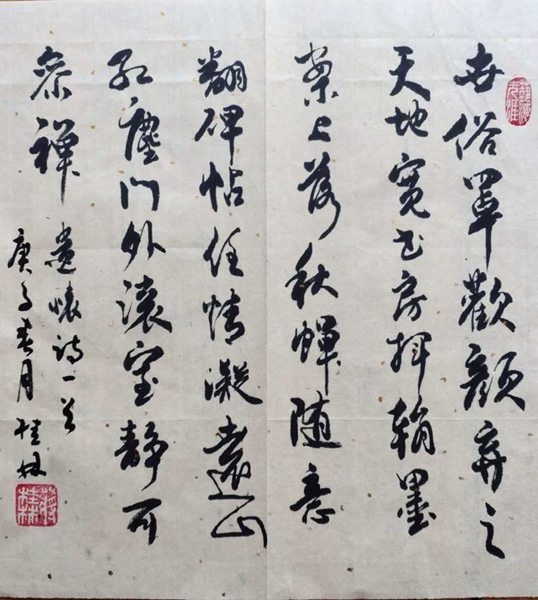 世俗罩歡顏弃之
天地寬书房揮翰墨
案上落秋蟬随意
翻碑帖任情凝遠山
紅塵門外滚室靜可
參禪 遣懷诗一首
庚子春月 桂林